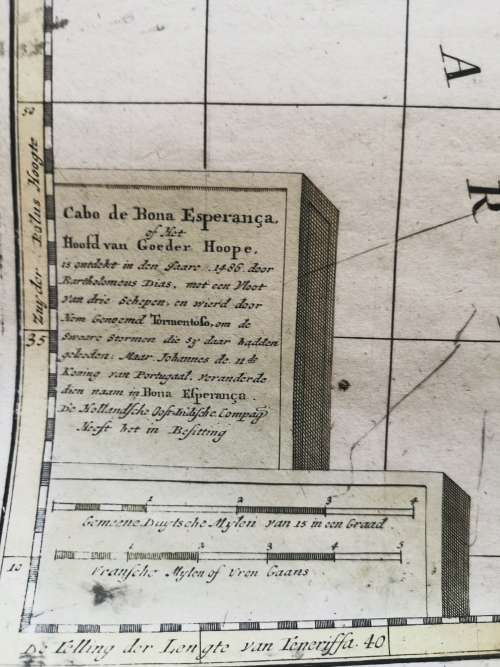 A
R
50
Zuyder Polus Hoogte
35
10
Cabo de Bona Esperança,
of Het
Hoofd van Goeder Hoope,
is ontdekt in den Jaare 1486 door
Bartholomeus Dias, met een Vloot
van drie Schepen, en wierd door
Hem Genoemd Tormentoso, om de
Sware Stormen die sy daar hadden
geleden: Maar Johannes de 11de
Koning van Portugaal, veranderde
dien naam in Bona Esperança.
De Hollandsche Oost-Indische Compag
Heeft het in Besitting
1 2 3 4
Gemeene Duytsche Mylen van 15 in een Graad.
1 2 3 4 5
Fransche Mylen of Uren Gaans
De Telling der Lengte van Teneriffa. 40